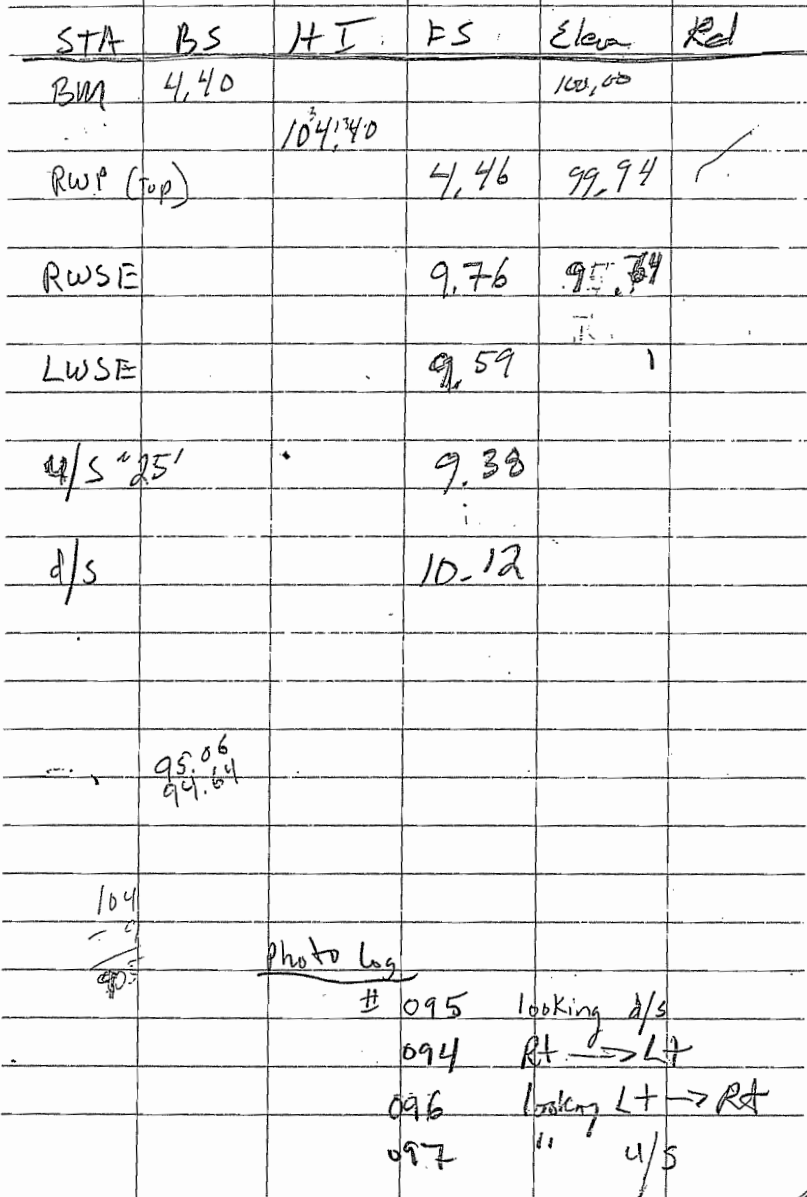 STA BS HI FS Eleva Rd
BM 4.40 100.00
104.40
RWP (Top) 4.46 99.94
RWSE 9.76
LWSE 9.59
u/s ~25' 9.38
d/s 10.12
95.06
94.64
104
Photo Log
# 095 looking d/s
094 Rt → Lt
096 looking Lt → Rt
097 " u/s